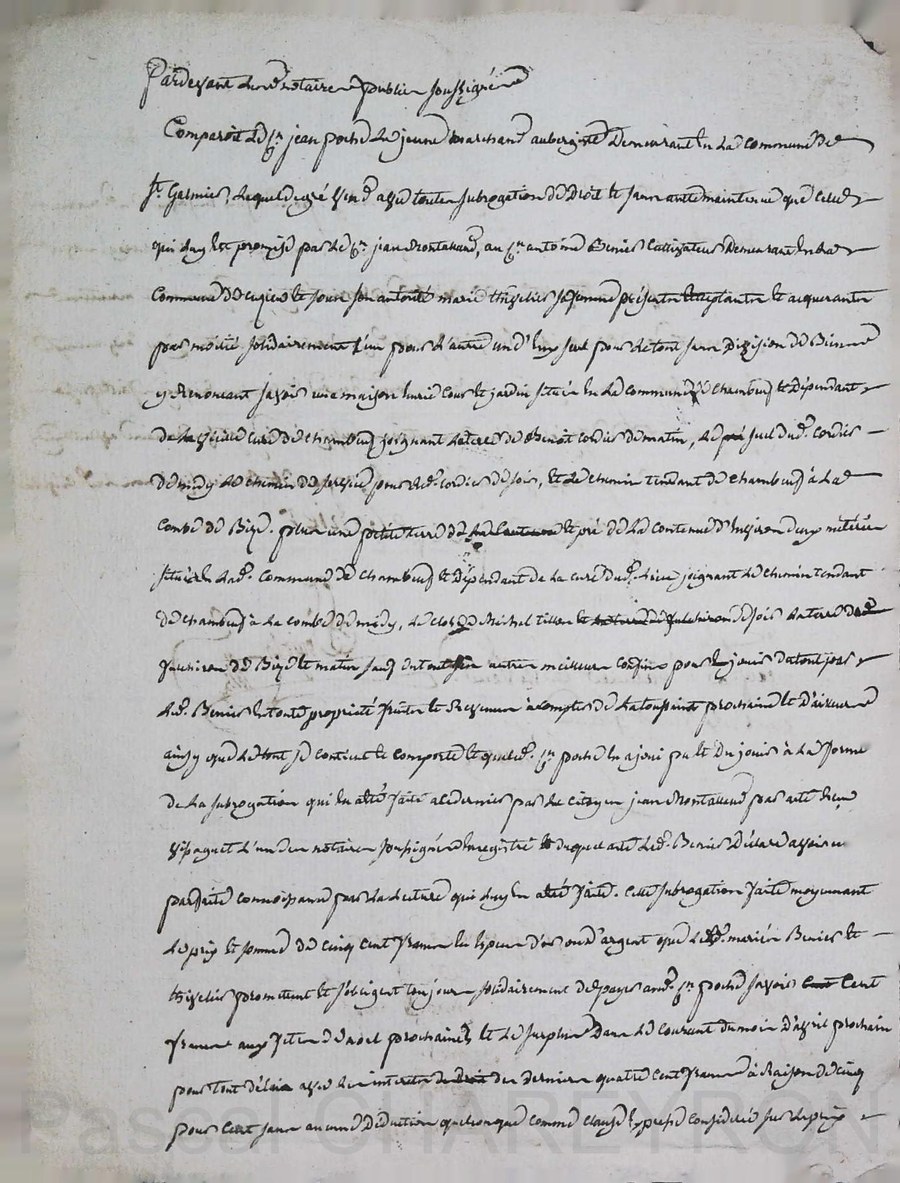 Pardevant les notaires publics soussignés
Comparoit le Cn jean poche le jeune marchand aubergiste Demeurant en la commune de
St Galmier, lequel de gré vend avec toutte subrogation de Droit et sans autre maintenue que celle
qui luy est promise par le Cn jean Montalland, au Cn antoine Benier Cultivateur Demeurant en la
Commune de et sous son autorité marie sa femme présente acceptante et acquerante
par moitié solidairement l'un pour l'autre un d'eux seul pour le tout sans Division de Biens
y Renonçant savoir une maison curie Cour et jardin située en la commune de Chambeuf et Dépendant
de la cure de Chambeuf joignant la terre de Benoit Cordier de matin, le pré suel dud. Cordier
de midy le chemin de pour led. cordier de soir, et le chemin tendant de Chambeuf à la
Combe de Bize. plus une petite terre de et pré de la contenue d'environ deux méterée
située en lad. Commune de Chambeuf et Dépendant de la cure dud. lieu joignant le chemin tendant
de Chambeuf à la Combe de midy, le clos de Michel de soir la terre de
de Bize et matin sauf du tout autres meilleurs confins pour en jouir du tout par
led. Benier en toute propriété fruits et Revenus à compter de la toussaint prochaine et D'ailleurs
ainsy que le tout se contient et comporte et que led. Cn poche en a joui pu et Du jouir à la forme
de la subrogation qui en a été faite a ce dernier par le Citoyen jean Montalland par acte Reçu
l'un des notaires soussignés Enregistré duquel acte led. Benier Déclare avoir eu
parfaite connoissance par la lecture qui luy en a été faite. Cette subrogation faite moyennant
le prix et somme de cinq cent francs en especes d'or ou d'argent que lesd. mariés Benier et
promettent et s'obligent toujours solidairement de payer aud. Cn poche savoir Cent Cent
francs aux fetes de noel prochaines et le surplus Dans le courant du mois d'avril prochain
pour tout délais avec les interets de Droit des derniers quatre cent francs à Raison de cinq
pour Cent sans aucune Déduction quelconque comme clause expresse considerée sur le prix
Pascal CHAREYRON